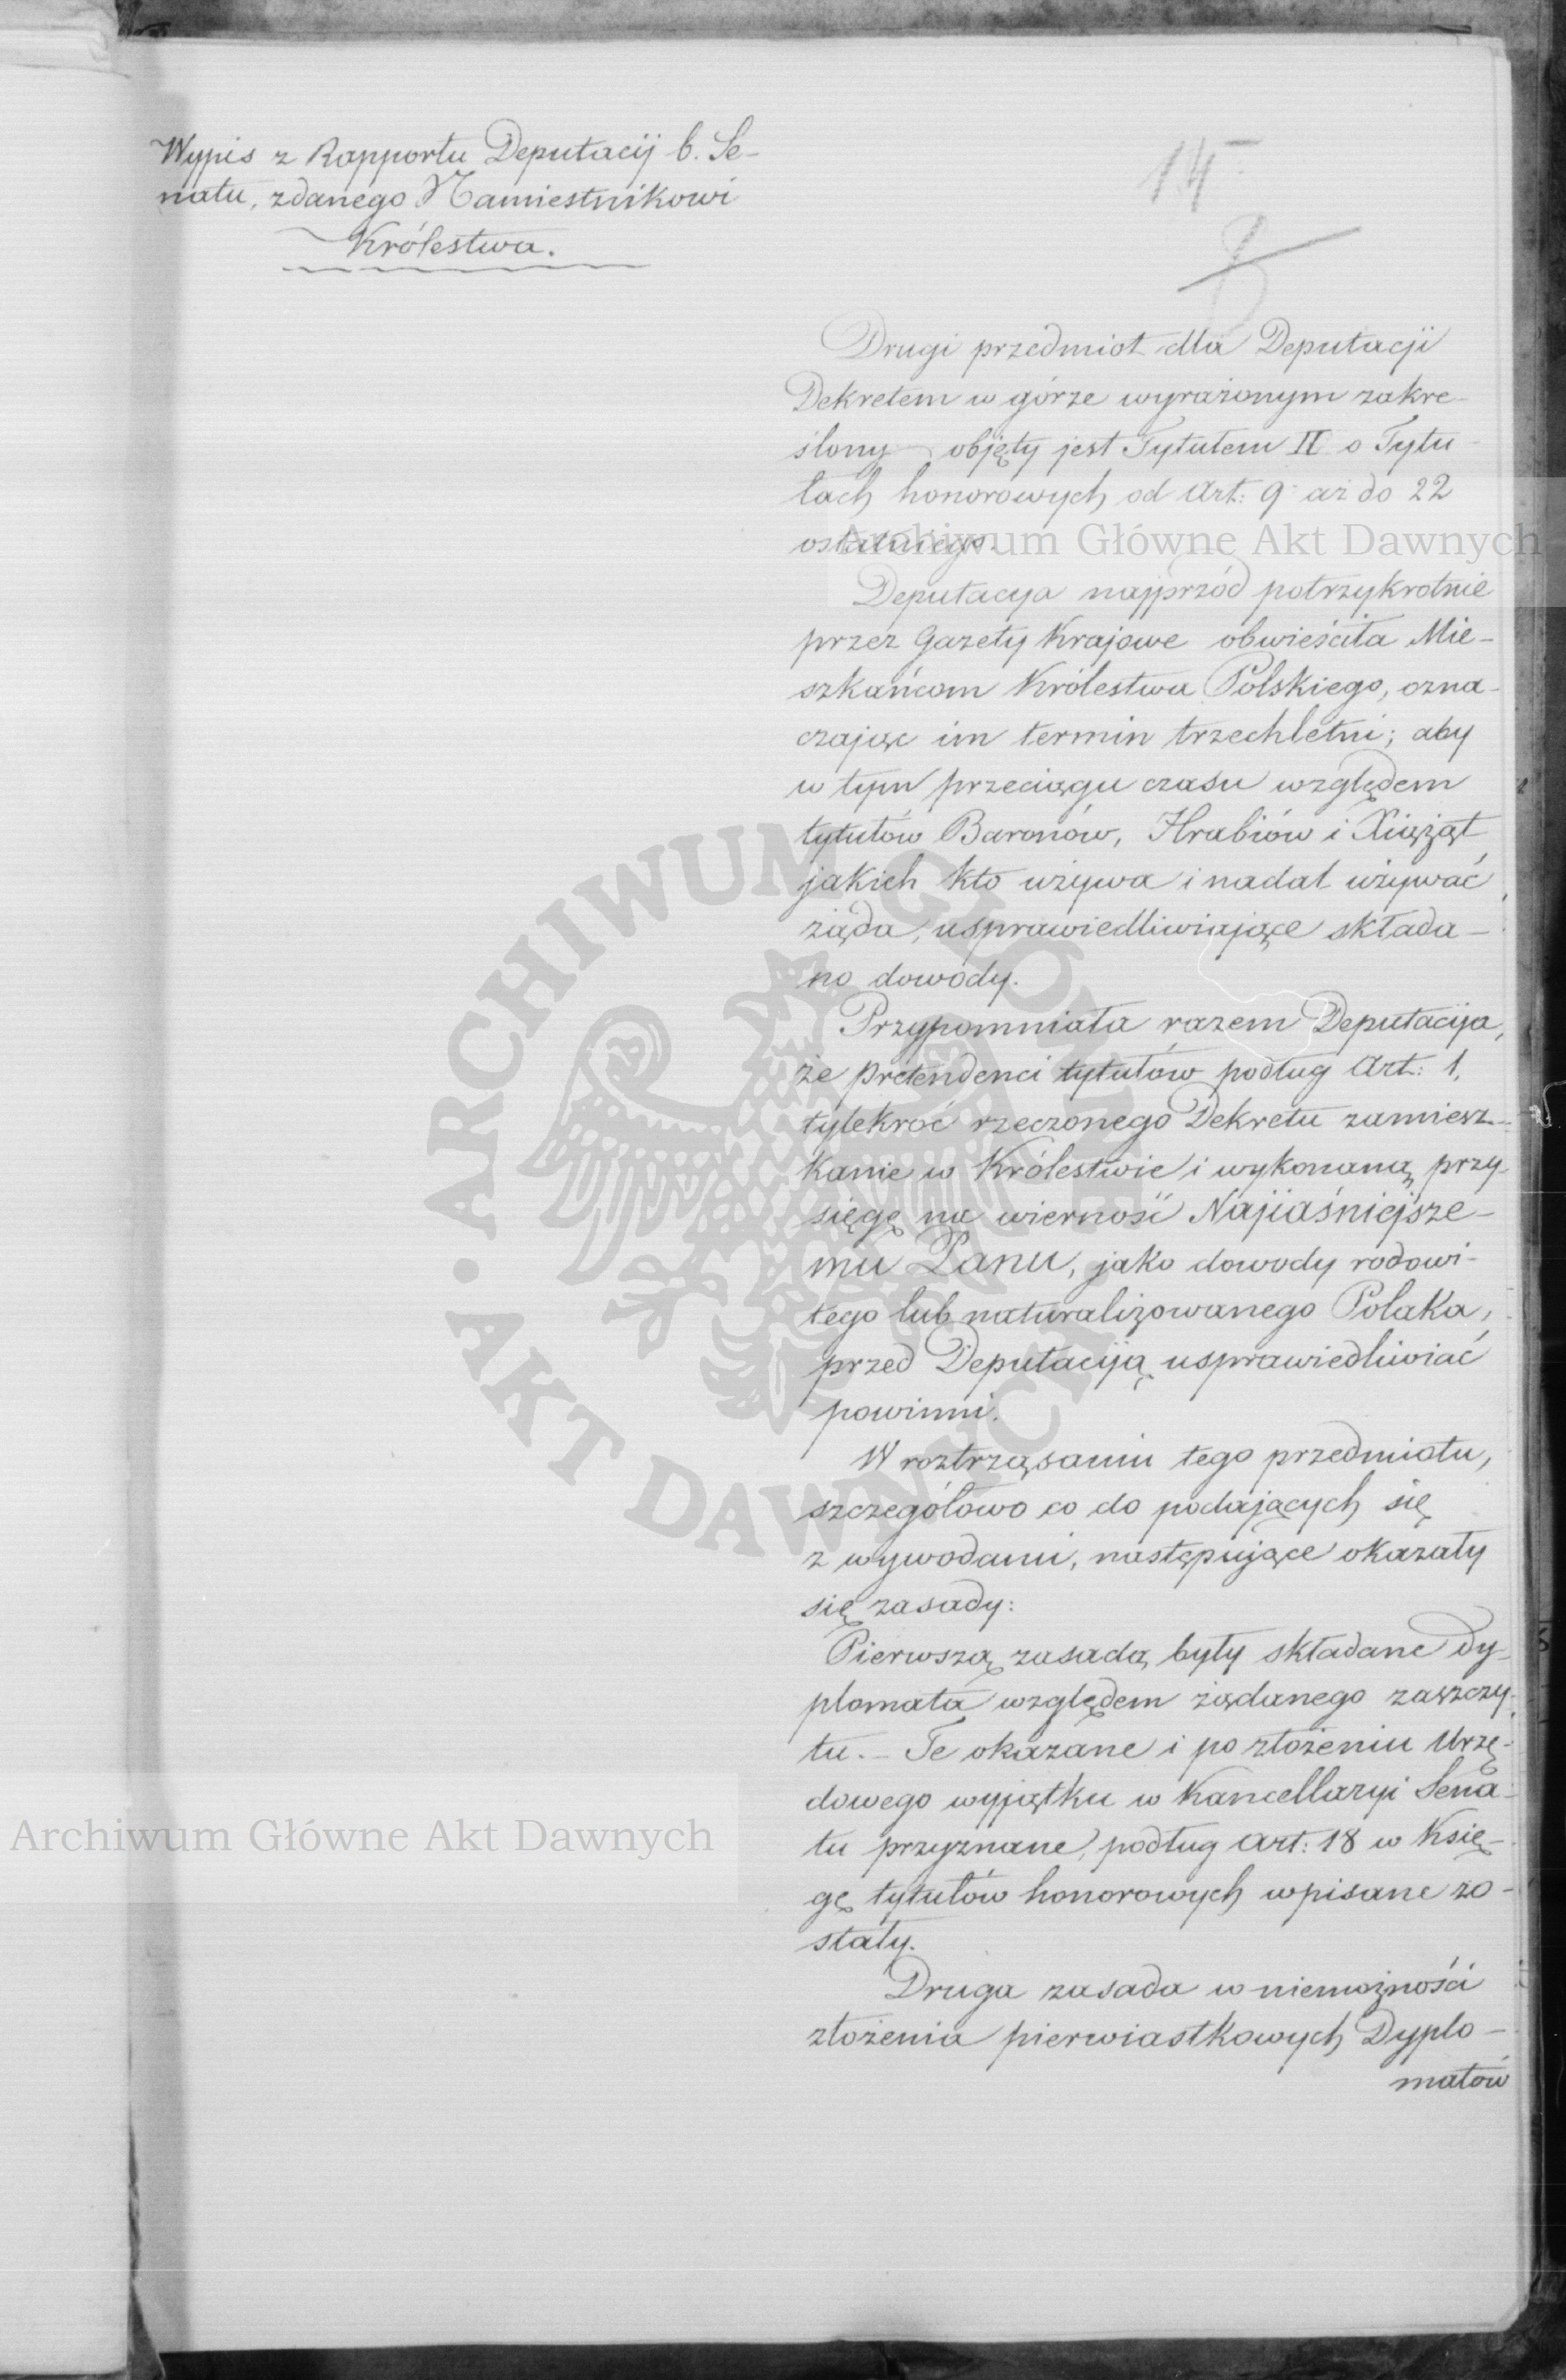 Wypis z Rapportu Deputacij b. Se-
natu, zdanego Namiestnikowi
Królestwa.
Drugi przedmiot dla Deputacji
Dekretem w górze wyrażonym zakre-
ślony objęty jest Tytułem II o Tytu-
łach honorowych od Art: 9 aż do 22
ostatniego.
Archiwum Główne Akt Dawnych
Deputacya najprzód potrzykrotnie
przez Gazety Krajowe obwieściła Mie-
szkańcom Królestwa Polskiego, ozna-
czając im termin trzechletni; aby
w tym przeciągu czasu względem
tytułów Baronów, Hrabiów i Xiążąt
jakich kto używa i nadal używać
żąda, usprawiedliwiające składa-
no dowody.
Przypomniała razem Deputacija,
że pretendenci tytułów podług Art: 1,
tylekroć rzeczonego Dekretu zamiesz-
kanie w Królestwie i wykonaną przy-
sięgę na wierność Najiaśniejsze-
mu Panu, jako dowody rodowi-
tego lub naturalizowanego Polaka,
przed Deputaciją usprawiedliwiać
powinni.
W roztrząsaniu tego przedmiotu,
szczegółowo co do podających się
z wywodami, następujące okazały
się zasady:
Pierwszą zasadą były składane Dy-
plomata względem żądanego zaszczy-
tu. – Te okazane i po złożeniu Urzę-
dowego wyjątku w Kancellaryi Sena-
tu przyznane, podług Art: 18 w Księ-
gę tytułów honorowych wpisane zo-
stały.
Druga zasada w niemożności
złożenia pierwiastkowych Dyplo-
matów
Archiwum Główne Akt Dawnych
ARCHIWUM GŁÓWNE AKT DAWNYCH